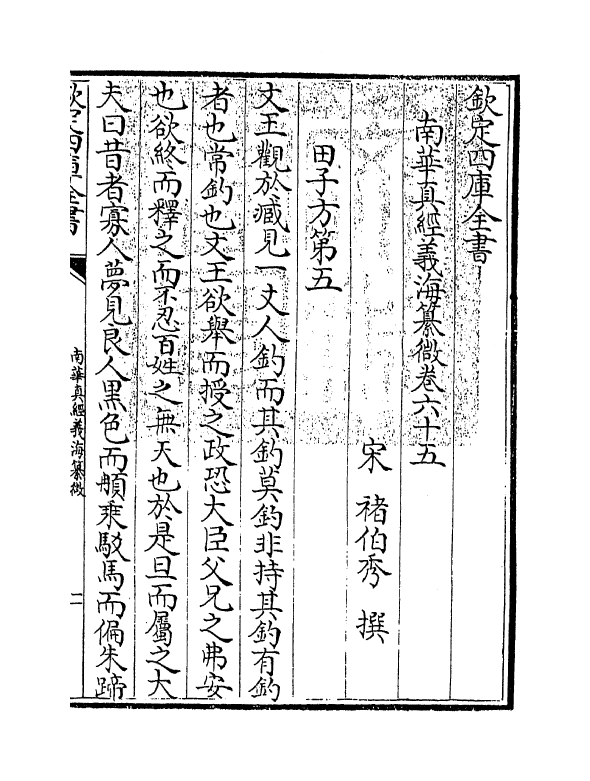 欽定四庫全書
南華真經義海纂微卷六十五
宋　褚伯秀　撰
田子方第五
文王觀於臧見一丈人釣而其釣莫釣非持其釣有釣
者也常釣也文王欲舉而授之政恐大臣父兄之弗安
也欲終而釋之而不忍百姓之無天也於是旦而屬之大
夫曰昔者寡人夢見良人黑色而䫇乘駁馬而偏朱蹄
欽定四庫全書
南華真經義海纂微